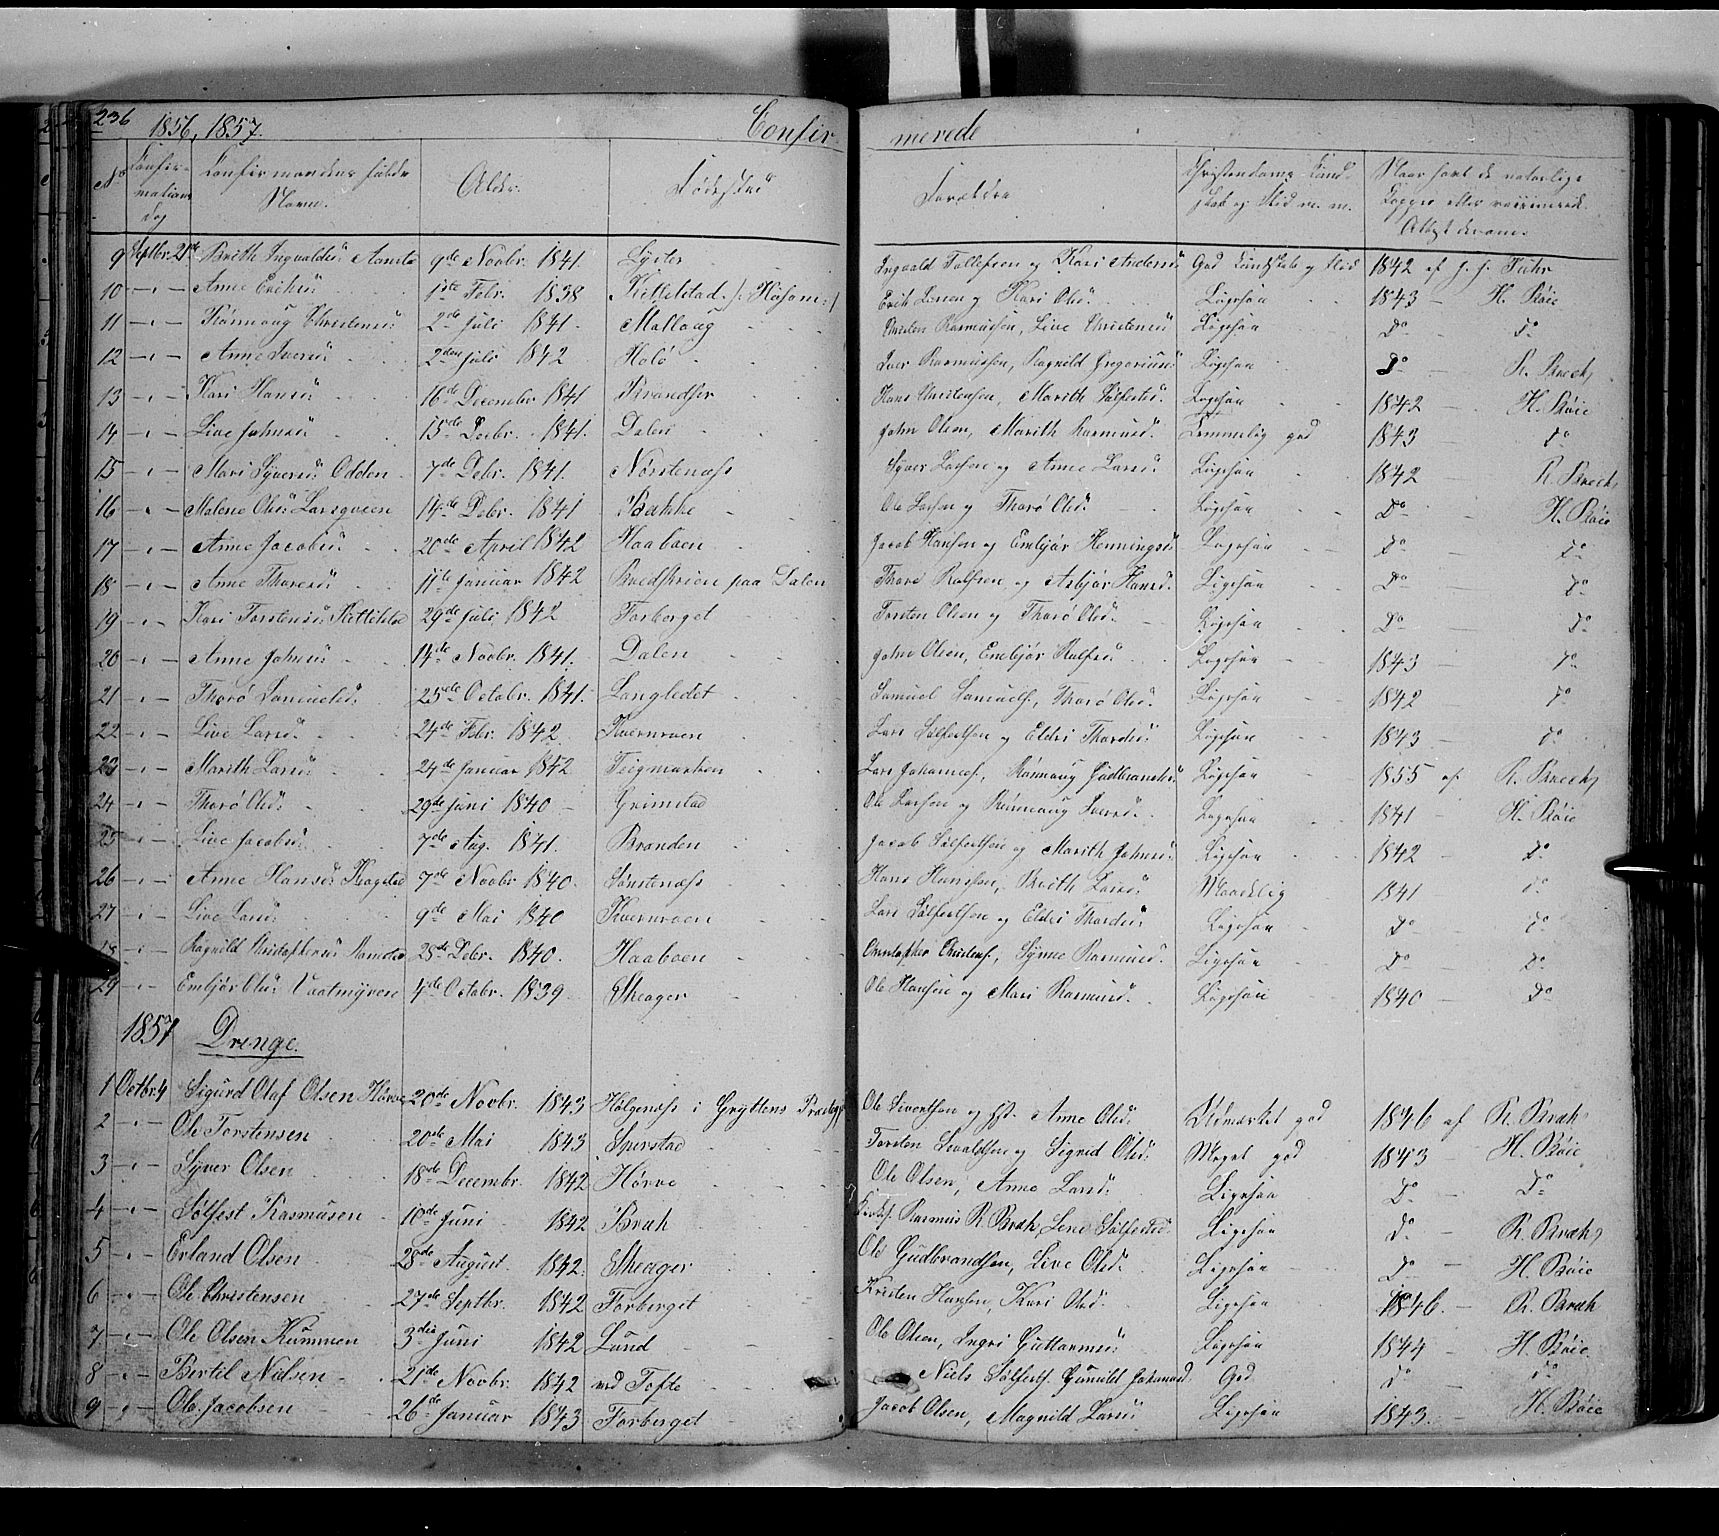 236 1856, 1857. Confirmerede
No Confirmations Dag Confirmandens fulde Navn. Alder. Fødested Forældre Christendoms Kundskab og Flid m. m. Naar havt de naturlige Kopper eller vaccinerede. Attest derom.
9 Septbr. 21de Brith Ingvaldsd: 9de Novbr. 1841 Lyster Ingvald Tollefsen og Kari Andersd: God Kundskab og Flid 1842 af J. J.
10 -"- Anne Eriksd: 1ste Febr. 1838 Kittelstad Erik og Kari Olsd: Ligesaa 1843 - H. Bøie
11 -"- Rønnoug Christensd: 2de Juli 1841. Christen Rasmussen, Live Christensd: Ligesaa Do do
12 -"- Anne Iversd: 2den Juli 1842 Holø Iver Rasmussen, Ragnild Gregoriusd: Ligesaa Do R.
13 -"- Kari Hansd: 16de December 1841 Hans Christensen, Marith Sølfestsd: Ligesaa 1842 - H. Bøie
14 -"- Live Johnsd: 15de Decbr. 1841. Dalen John Olsen, Marith Rasmusd: Temmelig god 1843 do
15 -"- Mari Syversd: Odden 7de Debr. 1841. Nørstenæss Syver Larsen og Anne Larsd: Ligesaa 1842 R.
16 -"- Malene Olsd: 14de Debr. 1841 Bakke Ole Larsen og Thorø Olsd: Ligesaa Do H. Bøie
17 -"- Anne Jacobsd: 20de April 1842 Haaboen Jacob Hansen og Embjør Henningsd: Ligesaa Do do
18 -"- Anne Thoresd: 11te Januar 1842 paa Dalen Thore Rolfsen og Asbjør Hansd: Ligesaa Do do
19 -"- Kari Torstensd: Kittelstad 29de Juli 1842 Forberget Torsten Olsen og Thorø Olsd: Ligesaa Do do
20 -"- Anne Johnsd: 14de Novbr. 1841. Dalen John Olsen, Embjør Rolfsd: Ligesaa 1843 do
21 -"- Thorø Samuelsd: 25de Octobr. 1841. Langledet Samuel Samuels., Thorø Olsd: Ligesaa 1842 do
22 -"- Live Larsd: 24de Febr. 1842. Kvernroen Lars Sølfestsen og Eldri Thordsd: Ligesaa 1843 do
23 -"- Marith Larsd: 24de Januar 1842. Teigmarken Lars Johannes., Rønnoug Gudbrandsd: Ligesaa 1855 af R.
24 -"- Thorø Olsd: 29de Juni 1840 Grimstad Ole Larsen og Rønnoug Iversd: Ligesaa 1841 H. Bøie
25 -"- Live Jacobsd: 7de Aug. 1841. Branden Jacob Sølfestsen og Marith Johnsd: Ligesaa 1842 do
26 -"- Anne Hansd: 7de Novbr 1840. Sønstenæss Hans Hansen, Brith Larsd: Maadelig 1841 do
27 -"- Live Larsd: 9de Mai 1840 Kvernroen Lars Sølfestsen og Eldri Thordsd: Ligesaa Do do
28 -"- Ragnild Christophersd: 28de Debr. 1840. Haaboen Christopher Christens., Synne Rasmusd: Ligesaa Do Do
29 -"- Embjør Olsd: Vaatmyren 4de Octobr. 1839 Skeager Ole Hansen og Mari Rasmusd: Ligesaa 1840 Do
1857 Drenge.
1 Octbr. 4 Sigurd Olaf Olsen Hørve 20de Novbr. 1843 Holgenæss i Gryttens Ole Sivertsen og Anne Olsd: Udmærket god 1846 af R. Bræk
2 -"- Ole Torstensen 20de Mai 1843 Sperstad Torsten og Sigrid Olsd: Meget god 1843 H. Bøie
3 -"- Syver Olsen 18de Decembr. 1842 Hørve Ole Olsen, Anne Larsd: Ligesaa Do Do
4 -"- Sølfest Rasmusen 10de Juni 1842 Rasmus R. Bræk, Lene Sølfestsd: Ligesaa do R. Bræk
5 -"- Erland Olsen 28de August 1842. Skeager Ole Gudbrandsen, Live Olsd: Ligesaa Do H. Bøie
6 -"- Ole Christensen 27de Septbr. 1842 Forberget Kristen Hansen, Kari Olsd: Ligesaa 1846. - R. Bræk
7 -"- Ole Olsen Kummen 3die Juni 1842 Lund Ole Olsen, Ingri Guttormsd: Ligesaa 1844 H. Bøie
8 -"- Bertil Nilsen 21de Novbr. 1842 ved Tofte Niels Sølfests. Gunild Johansd: God do do
9 -"- Ole Jacobsen 26de Januar 1843 Forberget Jacob Olsen, Magnild Larsd: Ligesaa 1843. - H. Bøie